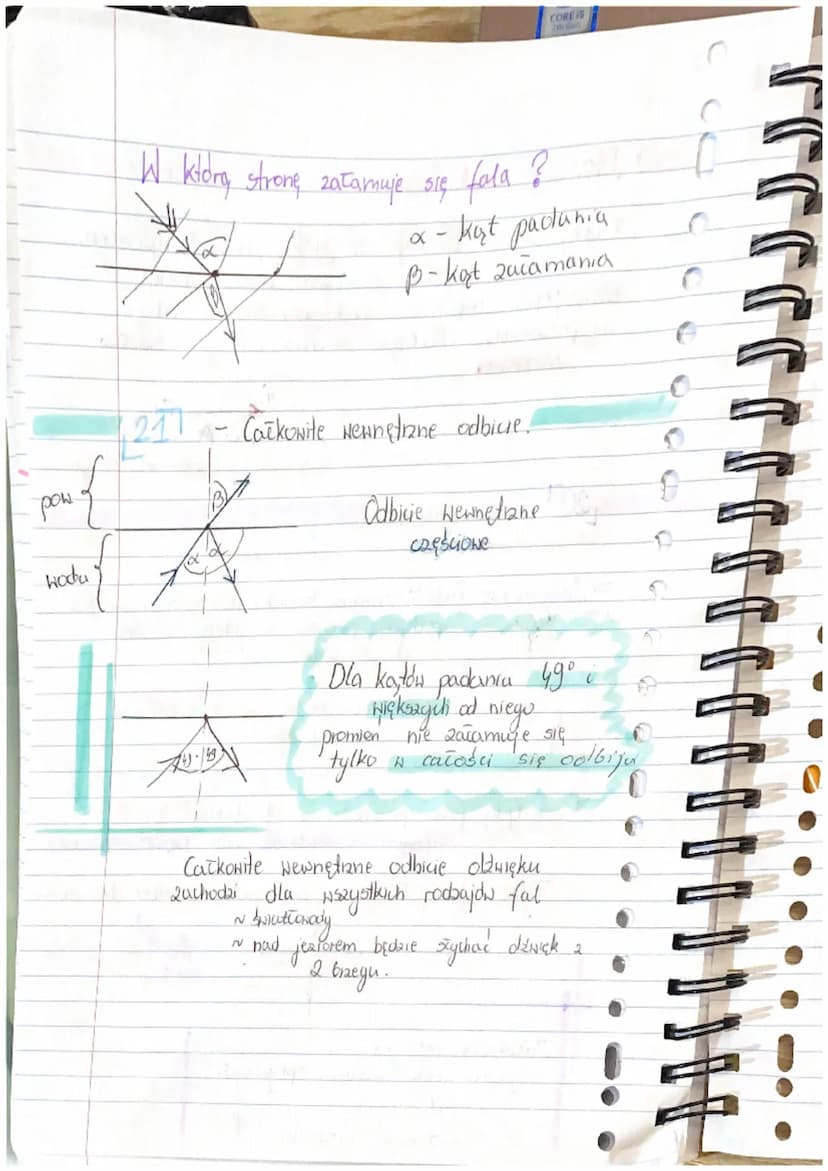 CORE i5
W którą stronę załamuje się fala ?
α
β
α - kąt padania
β - kąt załamania
21 - Całkowite wewnętrzne odbicie.
pow
β
woda
α α
Odbicie wewnętrzne
częściowe
Dla kątów padania 49° i
większych od niego
promień nie załamuje się
tylko w całości się odbija
49° 49
Całkowite wewnętrzne odbicie dźwięku
zachodzi dla wszystkich rodzajów fal
~ światłowody
~ nad jeziorem będzie słychać dźwięk z
2 brzegu.